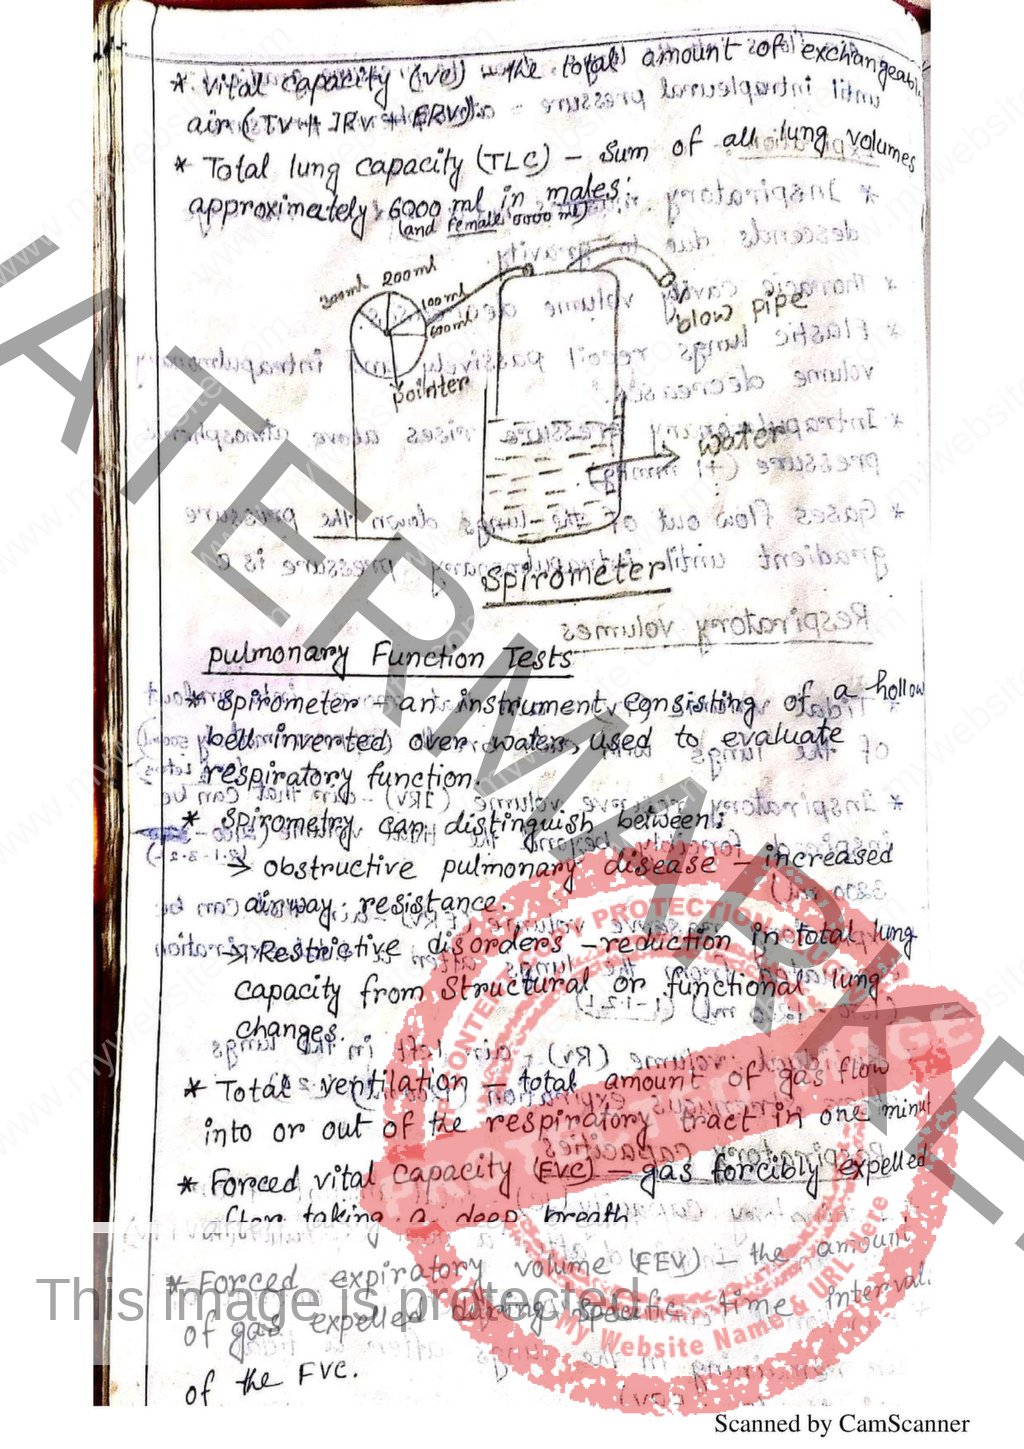 * Vital capacity (VC) – the total amount of exchangeable
air (TV + IRV + ERV).
* Total lung capacity (TLC) – Sum of all lung volumes
approximately 6000 ml in males.
(and Female 5000 ml)
300ml 200ml 100ml
pointer
blow pipe
water
Spirometer
Pulmonary Function Tests
* Spirometer – an instrument consisting of a hollow
bell inverted over water, used to evaluate
respiratory function.
* Spirometry can distinguish between:
→ obstructive pulmonary disease – increased
airway resistance.
→ Restrictive disorders – reduction in total lung
capacity from Structural or functional lung
changes.
* Total ventilation – total amount of gas flow
into or out of the respiratory tract in one minut
* Forced vital capacity (FVC) – gas forcibly expelled
after taking a deep breath
* Forced expiratory volume (FEV) – the amount
of gas expelled during specific time interval.
of the FVC.
WATERMARKED
This image is protected
CONTENT COPY PROTECTION
PROTECTED IMAGE
My Website Name & URL Here
Scanned by CamScanner